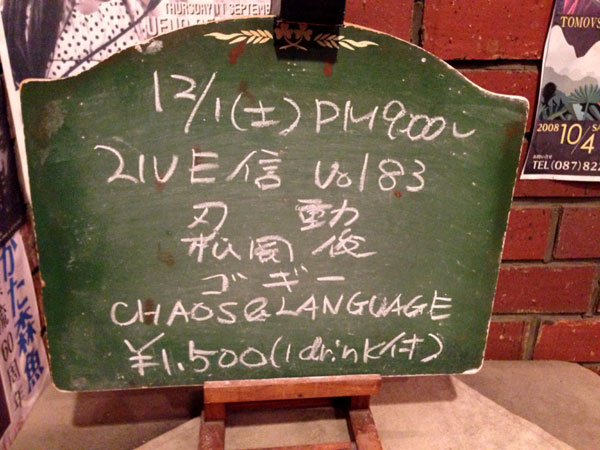 THURSDAY 01 SEPTEMBE
UENO
12/1(土) PM9:00〜
21VE信 Vol83
刃 動
松岡 俊
ゴギー
CHAOS&LANGUAGE
¥1,500(1drink付)
TOMOVS
2008 10/4 SA
TEL (087)822
かた森魚
60周年